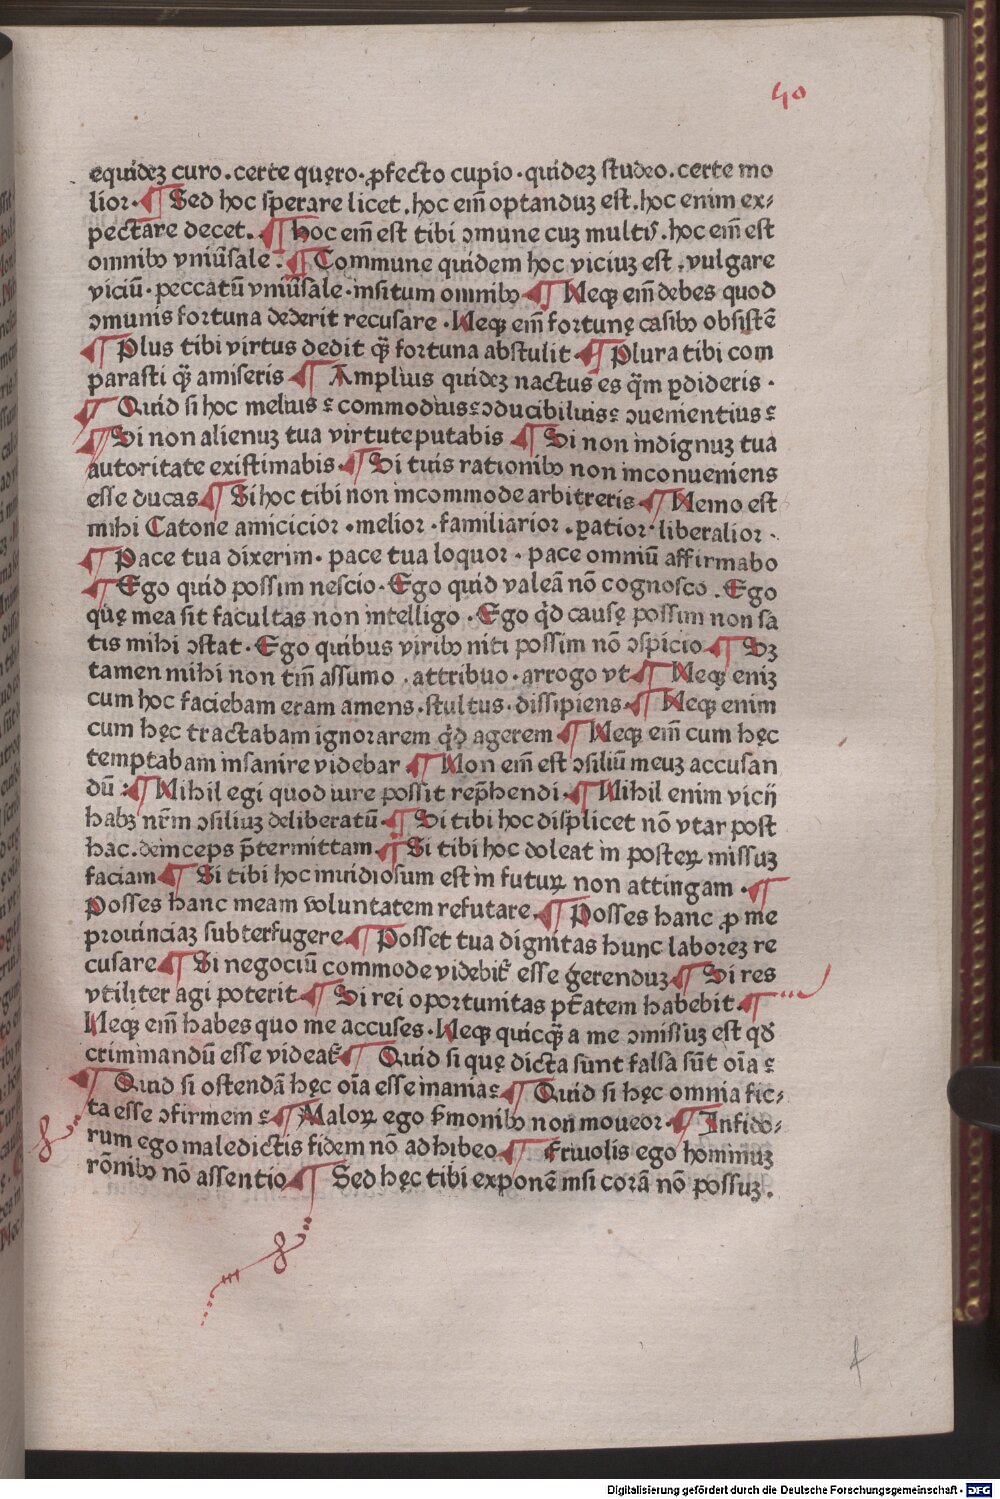 40
equidez curo . certe quęro . ꝓfecto cupio . quidez studeo . certe mo
lior . ¶ Sed hoc sperare licet . hoc em̄ optanduz est . hoc enim ex⸗
pectare decet . ¶ Hoc em̄ est tibi ɔmune cuz multis . hoc em̄ est
omnibꝰ vniūsale . ¶ Commune quidem hoc viciuz est . vulgare
viciū . peccatū vniūsale . insitum omnibꝰ ¶ Neqꝫ em̄ debes quod
ɔmunis fortuna dederit recusare . Neqꝫ em̄ fortunę casibꝰ obsistē
¶ Plus tibi virtus dedit q̄ꝫ fortuna abstulit ¶ Plura tibi com
parasti q̄ꝫ amiseris ¶ Amplius quidez nactus es q̄m ꝑdideris .
¶ Quid si hoc melius ⁊ commodius ⁊ ɔducibilius ⁊ ɔuenientius ⁊
¶ Si non alienuz tua virtute putabis ¶ Si non indignuz tua
autoritate existimabis . ¶ Si tuis rationibꝰ non inconueniens
esse ducas ¶ Si hoc tibi non incommode arbitreris ¶ Nemo est
mihi Catone amicicior . melior . familiarior . ꝑatior . liberalior .
¶ Pace tua dixerim . pace tua loquor . pace omniū affirmabo
¶ Ego quid possim nescio . Ego quid valeā nō cognosco . Ego
quę mea sit facultas non intelligo . Ego qd̄ causę possim non sa
tis mihi ɔstat . Ego quibus viribꝰ niti possim nō ɔspicio ¶ Sꝫ
tamen mihi non tm̄ assumo . attribuo . arrogo vt ¶ Neqꝫ eniz
cum hoc faciebam eram amens . stultus . dissipiens . ¶ Neqꝫ enim
cum hęc tractabam ignorarem qd̄ agerem ¶ Neqꝫ em̄ cum hęc
temptabam insanire videbar ¶ Non em̄ est ɔsiliū meuz accusan
dū : ¶ Nihil egi quod iure possit rep̄hendi . ¶ Nihil enim vicij
habꝫ nr̄m ɔsiliuz deliberatū . ¶ Si tibi hoc displicet nō vtar post
hac . deinceps p̄termittam . ¶ Si tibi hoc doleat in posterꝝ missuz
faciam ¶ Si tibi hoc inuidiosum est in futurꝝ non attingam . ¶
Posses hanc meam voluntatem refutare . ¶ Posses hanc ꝓ me
prouinciaz subterfugere . ¶ Posset tua dignitas hunc laborez re
cusare ¶ Si negociū commode videbit̄ esse gerenduz ¶ Si res
vtiliter agi poterit ¶ Si rei oportunitas pt̄atem habebit . ¶
Neqꝫ em̄ habes quo me accuses . Neqꝫ quicqꝫ̄ a me ɔmissuz est qd̄
criminandū esse videat̄ ¶ Quid si quę dicta sunt falsa sūt oīa ⁊
¶ Quid si ostendā hęc oīa esse inania ⁊ ¶ Quid si hęc omnia fic⸗
ta esse ɔfirmem ⁊ ¶ Malorꝝ ego s̄monibꝰ non moueor . ¶ Infido⸗
rum ego maledictis fidem nō adhibeo ¶ Friuolis ego hominuz
rōnibꝰ nō assentio ¶ Sed hęc tibi exponē insi corā nō possuz .
Digitalisierung gefördert durch die Deutsche Forschungsgemeinschaft - DFG